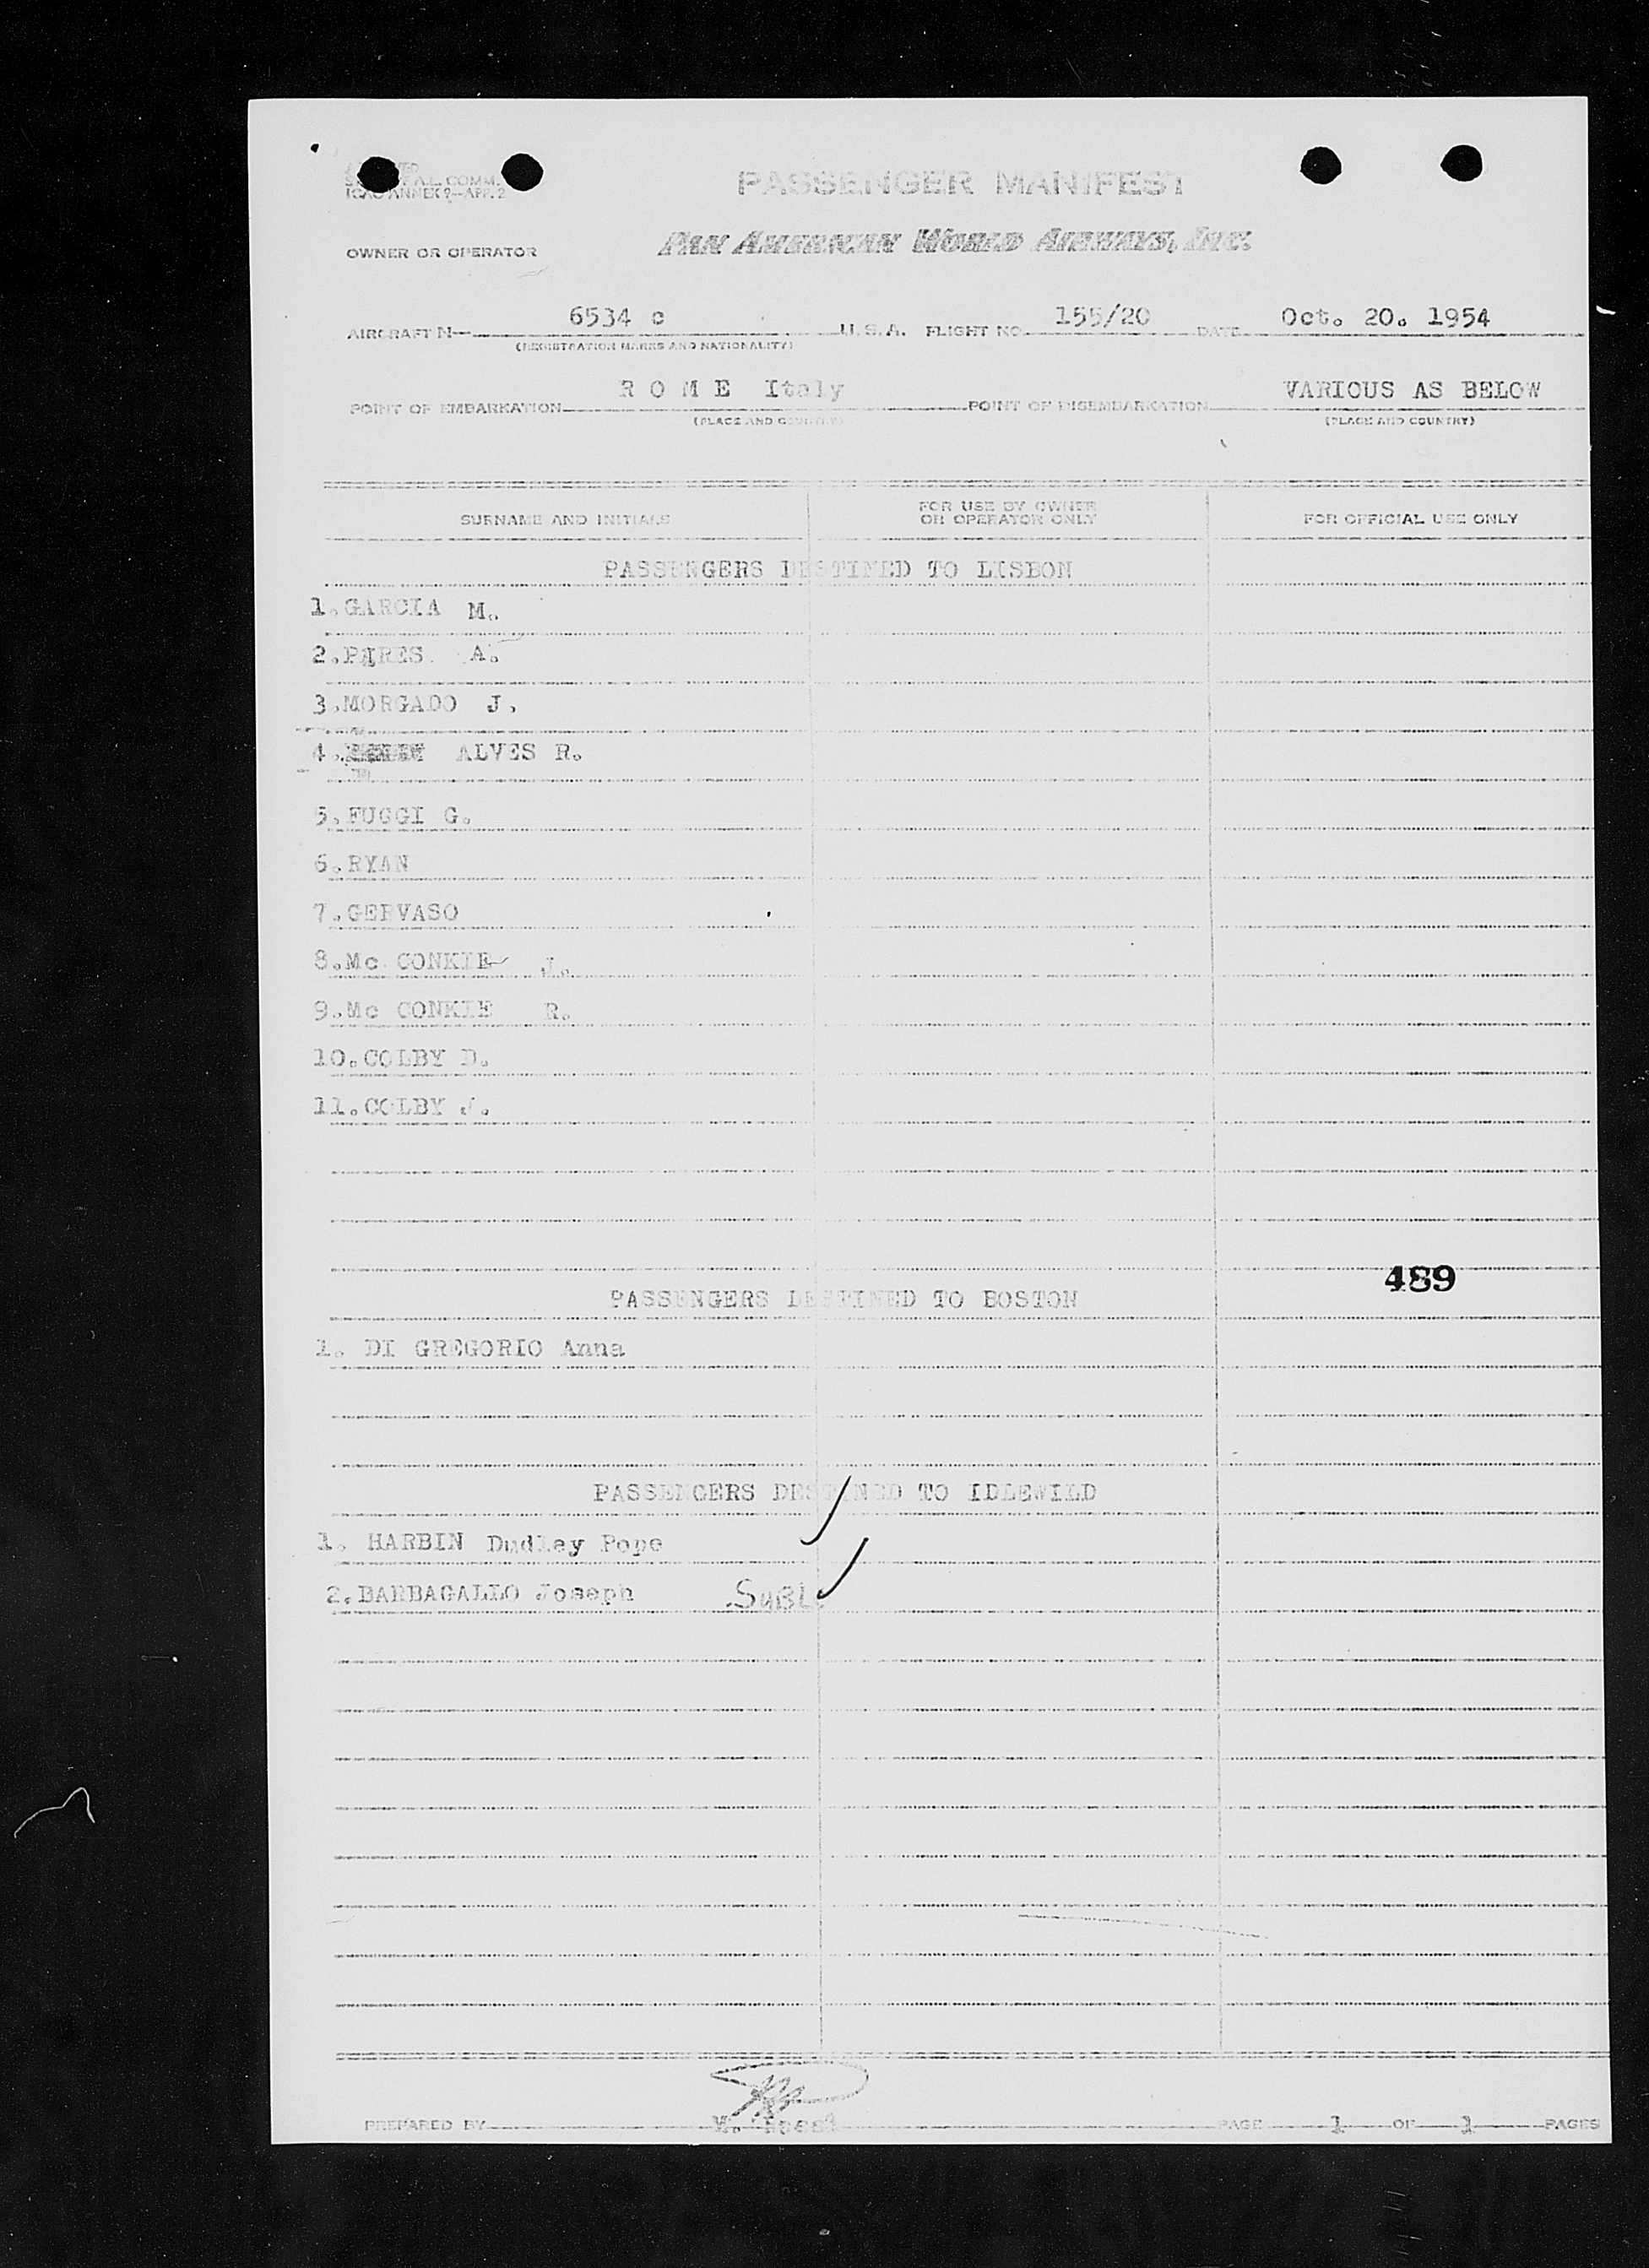 A.L. COMM.
ICAO ANNEX 9-APP. 2
PASSENGER MANIFEST
OWNER OR OPERATOR PAN AMERICAN WORLD AIRWAYS, INC.
AIRCRAFT N- 6534 c U. S. A. FLIGHT NO. 155/20 DATE Oct. 20. 1954
(REGISTRATION MARKS AND NATIONALITY)
POINT OF EMBARKATION R O M E Italy POINT OF DISEMBARKATION VARIOUS AS BELOW
(PLACE AND COUNTRY) (PLACE AND COUNTRY)
SURNAME AND INITIALS FOR USE BY OWNER OR OPERATOR ONLY FOR OFFICIAL USE ONLY
PASSENGERS DESTINED TO LISBON
1.GARCIA M.
2.PIRES A.
3.MORGADO J.
4. ALVES R.
5.FUGGI G.
6.RYAN
7.GERVASO
8.Mc CONKIE J.
9.Mc CONKIE R.
10.COLBY D.
11.COLBY J.
489
PASSENGERS DESTINED TO BOSTON
1. DI GREGORIO Anna
PASSENGERS DESTINED TO IDLEWILD
1. HARBIN Dudley Pope
2.BARBAGALLO Joseph SUBL.
PREPARED BY PAGE 1 OF 1 PAGES